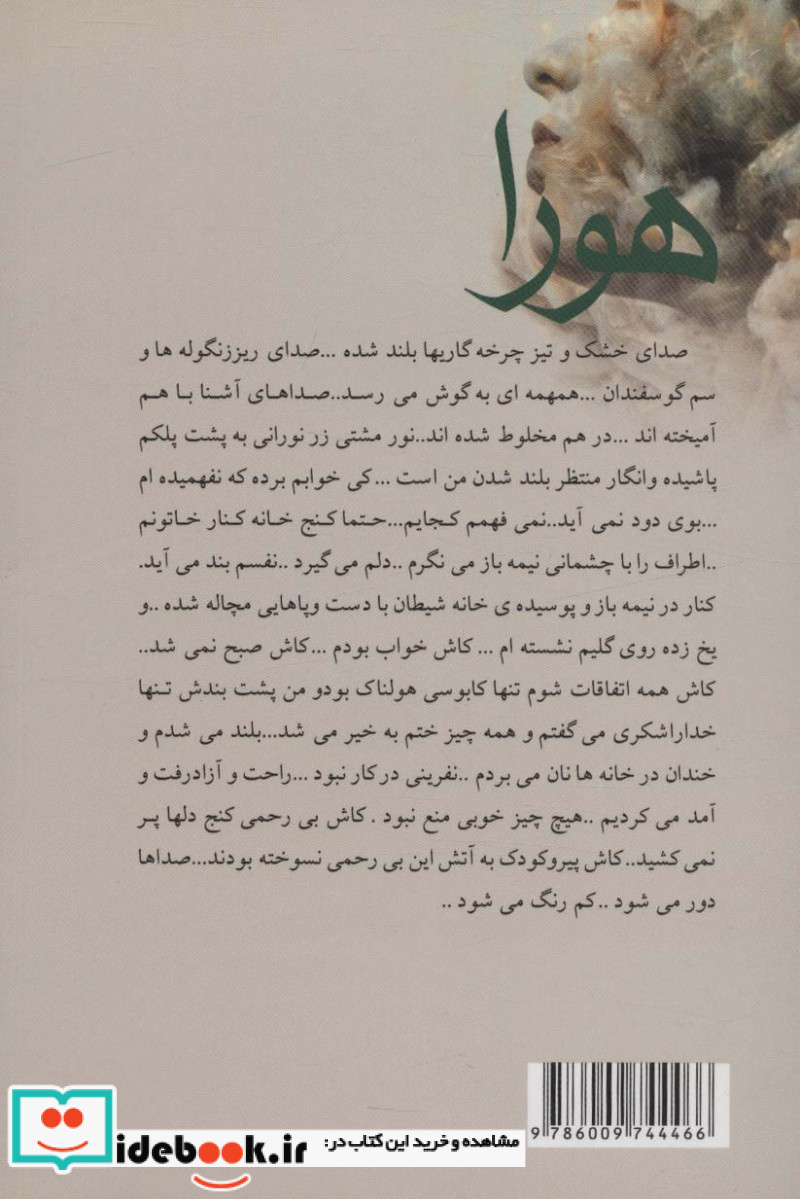 هورا
صدای خشک و تیز چرخه گاریها بلند شده ...صدای ریززنگوله ها و
سم گوسفندان ...همهمه ای به گوش می رسد..صداهای آشنا با هم
آمیخته اند ...در هم مخلوط شده اند..نور مشتی زر نورانی به پشت پلکم
پاشیده وانگار منتظر بلند شدن من است ...کی خوابم برده که نفهمیده ام
...بوی دود نمی آید..نمی فهمم کجایم...حتما کنج خانه کنار خاتونم
..اطراف را با چشمانی نیمه باز می نگرم ..دلم می گیرد ..نفسم بند می آید.
کنار در نیمه باز و پوسیده ی خانه شیطان با دست وپاهایی مچاله شده ..و
یخ زده روی گلیم نشسته ام ... کاش خواب بودم ...کاش صبح نمی شد..
کاش همه اتفاقات شوم تنها کابوسی هولناک بودو من پشت بندش تنها
خداراشکری می گفتم و همه چیز ختم به خیر می شد...بلند می شدم و
خندان در خانه ها نان می بردم ..نفرینی درکار نبود ...راحت و آزادرفت و
آمد می کردیم ..هیچ چیز خوبی منع نبود . کاش بی رحمی کنج دلها پر
نمی کشید..کاش پیروکودک به آتش این بی رحمی نسوخته بودند...صداها
دور می شود ..کم رنگ می شود ..
9 786009 744466
مشاهده و خرید این کتاب در:
idebook.ir